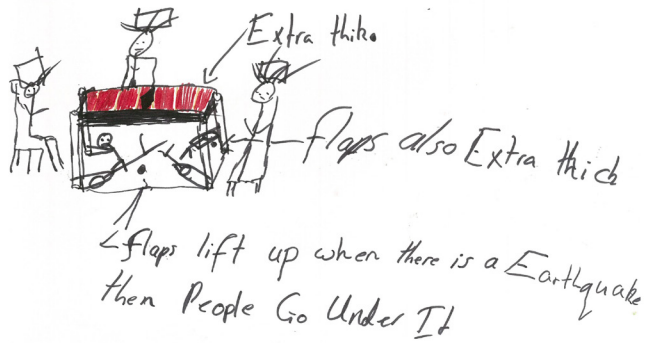 Extra thik.
flaps also Extra thich
flaps lift up when there is a Earthquake
then People Go Under It